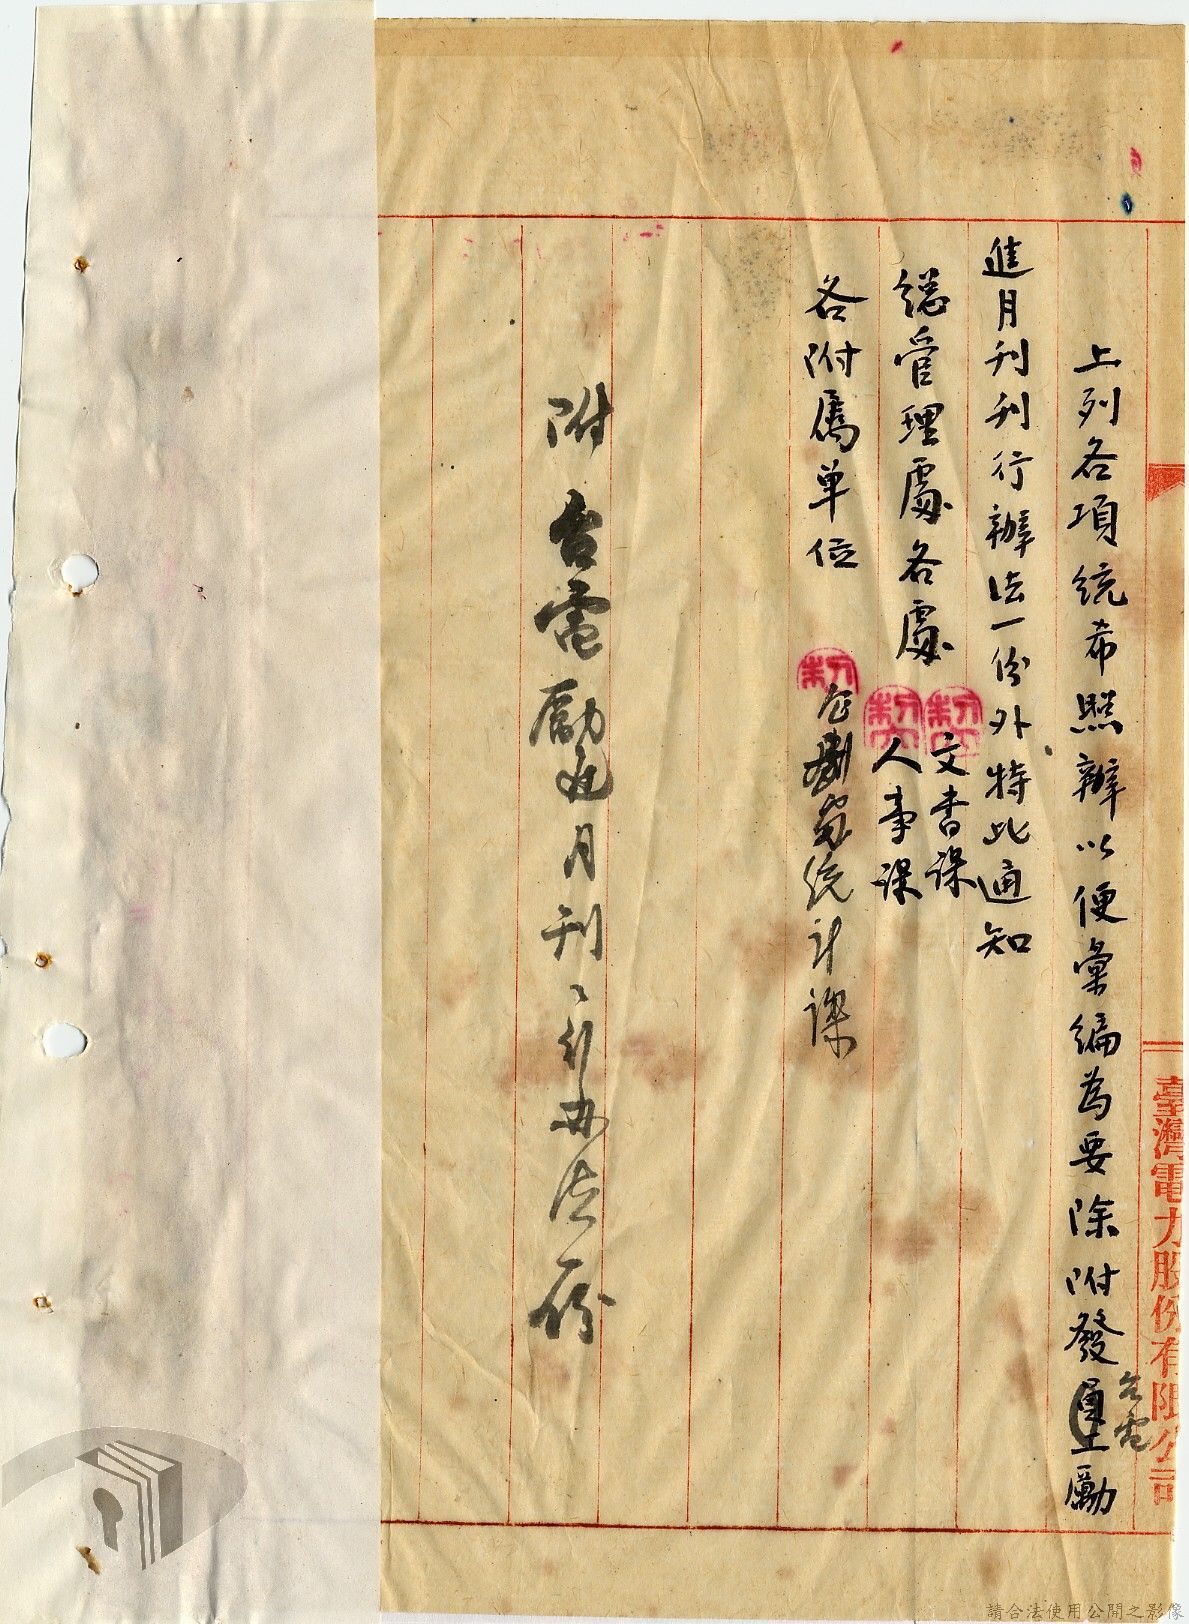 上列各項統希照辦以便彙編為要除附發台電勵
進月刊刊行辦法一份外特此通知
總管理處各處
文書課
人事課
各附屬單位
統計課
附台電勵進月刊刊行办法一份
臺灣電力股份有限公司
請合法使用公開之影像